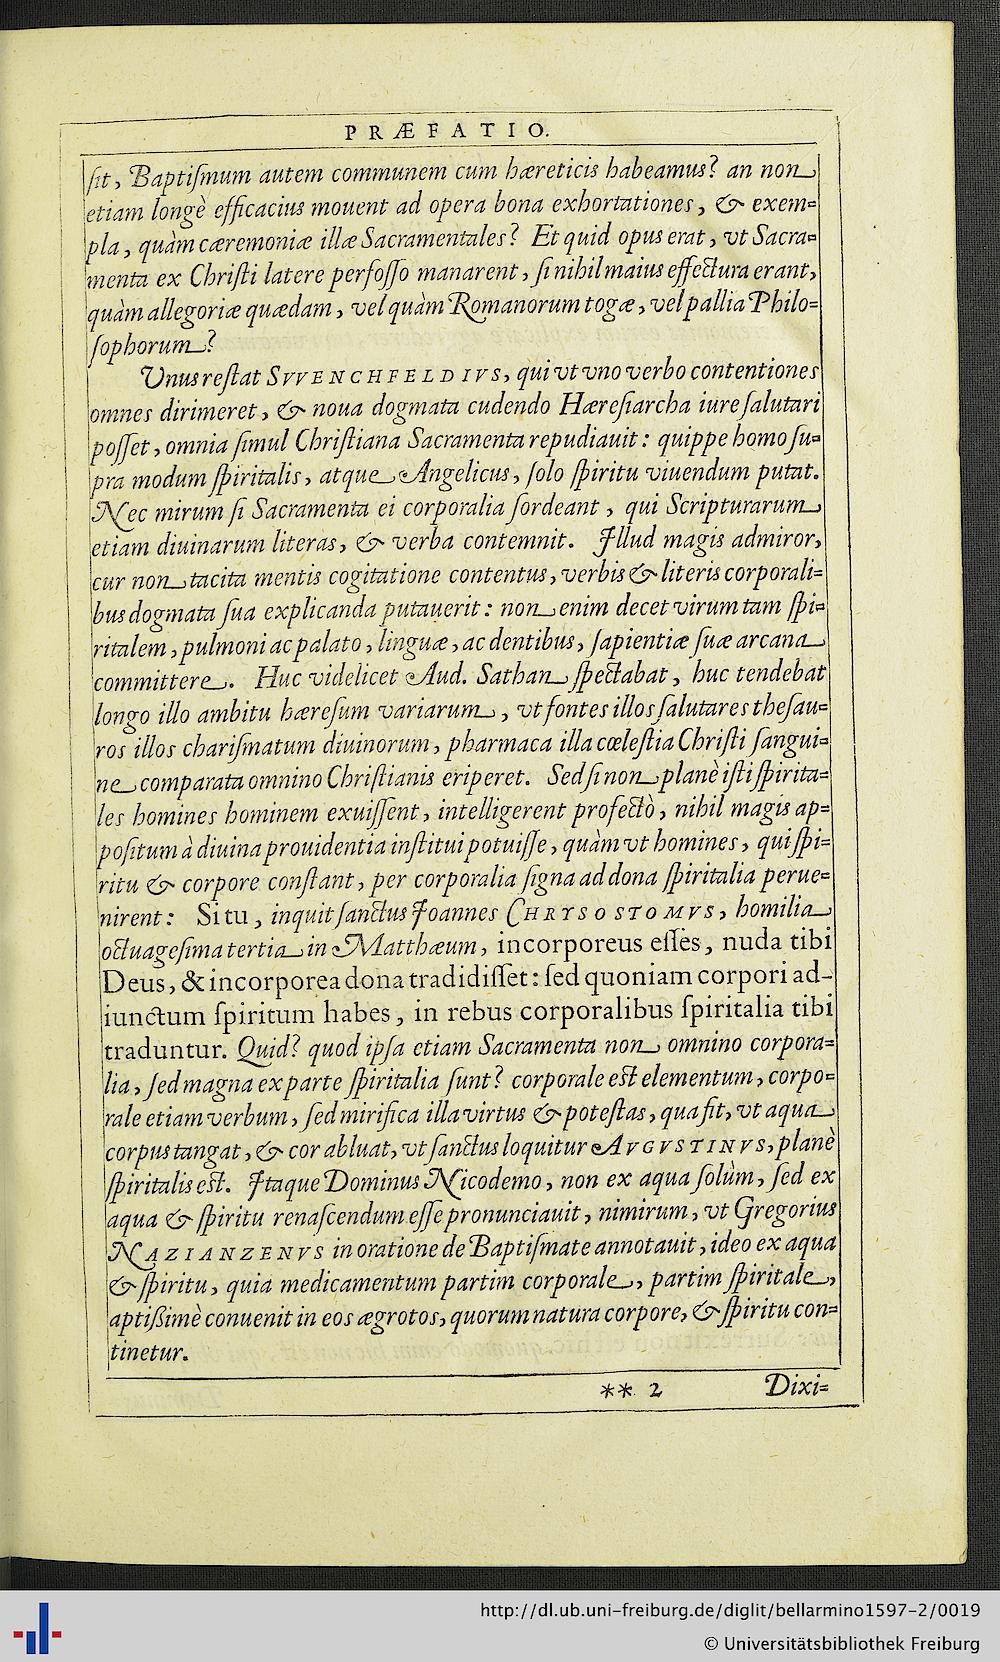 PRÆFATIO.
ſit, Baptiſmum autem communem cum hæreticis habeamus? an non
etiam longè efficacius mouent ad opera bona exhortationes, & exem-
pla, quàm cæremoniæ illæ Sacramentales? Et quid opus erat, vt Sacra-
menta ex Chriſti latere perfoſſo manarent, ſi nihil maius effectura erant,
quàm allegoriæ quædam, vel quàm Romanorum togæ, vel pallia Philo-
ſophorum?
Vnus reſtat SVVENCHFELDIVS, qui vt vno verbo contentiones
omnes dirimeret, & noua dogmata cudendo Hæreſiarcha iure ſalutari
poſſet, omnia ſimul Chriſtiana Sacramenta repudiauit: quippe homo ſu-
pra modum ſpiritalis, atque Angelicus, ſolo ſpiritu viuendum putat.
Nec mirum ſi Sacramenta ei corporalia ſordeant, qui Scripturarum
etiam diuinarum literas, & verba contemnit. Illud magis admiror,
cur non tacita mentis cogitatione contentus, verbis & literis corporali-
bus dogmata ſua explicanda putauerit: non enim decet virum tam ſpi-
ritalem, pulmoni ac palato, linguæ, ac dentibus, ſapientiæ ſuæ arcana
committere. Huc videlicet Aud. Sathan ſpectabat, huc tendebat
longo illo ambitu hæreſum variarum, vt fontes illos ſalutares theſau-
ros illos chariſmatum diuinorum, pharmaca illa cœleſtia Chriſti ſangui-
ne comparata omnino Chriſtianis eriperet. Sed ſi non planè iſti ſpirita-
les homines hominem exuiſſent, intelligerent profectò, nihil magis ap-
poſitum à diuina prouidentia inſtitui potuiſſe, quàm vt homines, qui ſpi-
ritu & corpore conſtant, per corporalia ſigna ad dona ſpiritalia perue-
nirent: Si tu, inquit ſanctus Joannes CHRYSOSTOMVS, homilia
octuageſima tertia in Matthæum, incorporeus eſſes, nuda tibi
Deus, & incorporea dona tradidiſſet: ſed quoniam corpori ad-
iunctum ſpiritum habes, in rebus corporalibus ſpiritalia tibi
traduntur. Quid? quod ipſa etiam Sacramenta non omnino corpora-
lia, ſed magna ex parte ſpiritalia ſunt? corporale eſt elementum, corpo-
rale etiam verbum, ſed mirifica illa virtus & poteſtas, qua fit, vt aqua
corpus tangat, & cor abluat, vt ſanctus loquitur AVGVSTINVS, planè
ſpiritalis eſt. Itaque Dominus Nicodemo, non ex aqua ſolùm, ſed ex
aqua & ſpiritu renaſcendum eſſe pronunciauit, nimirum, vt Gregorius
NAZIANZENVS in oratione de Baptiſmate annotauit, ideo ex aqua
& ſpiritu, quia medicamentum partim corporale, partim ſpiritale,
aptißimè conuenit in eos ægrotos, quorum natura corpore, & ſpiritu con-
tinetur.
** 2 Dixi-
http://dl.ub.uni-freiburg.de/diglit/bellarmino1597-2/0019
© Universitätsbibliothek Freiburg